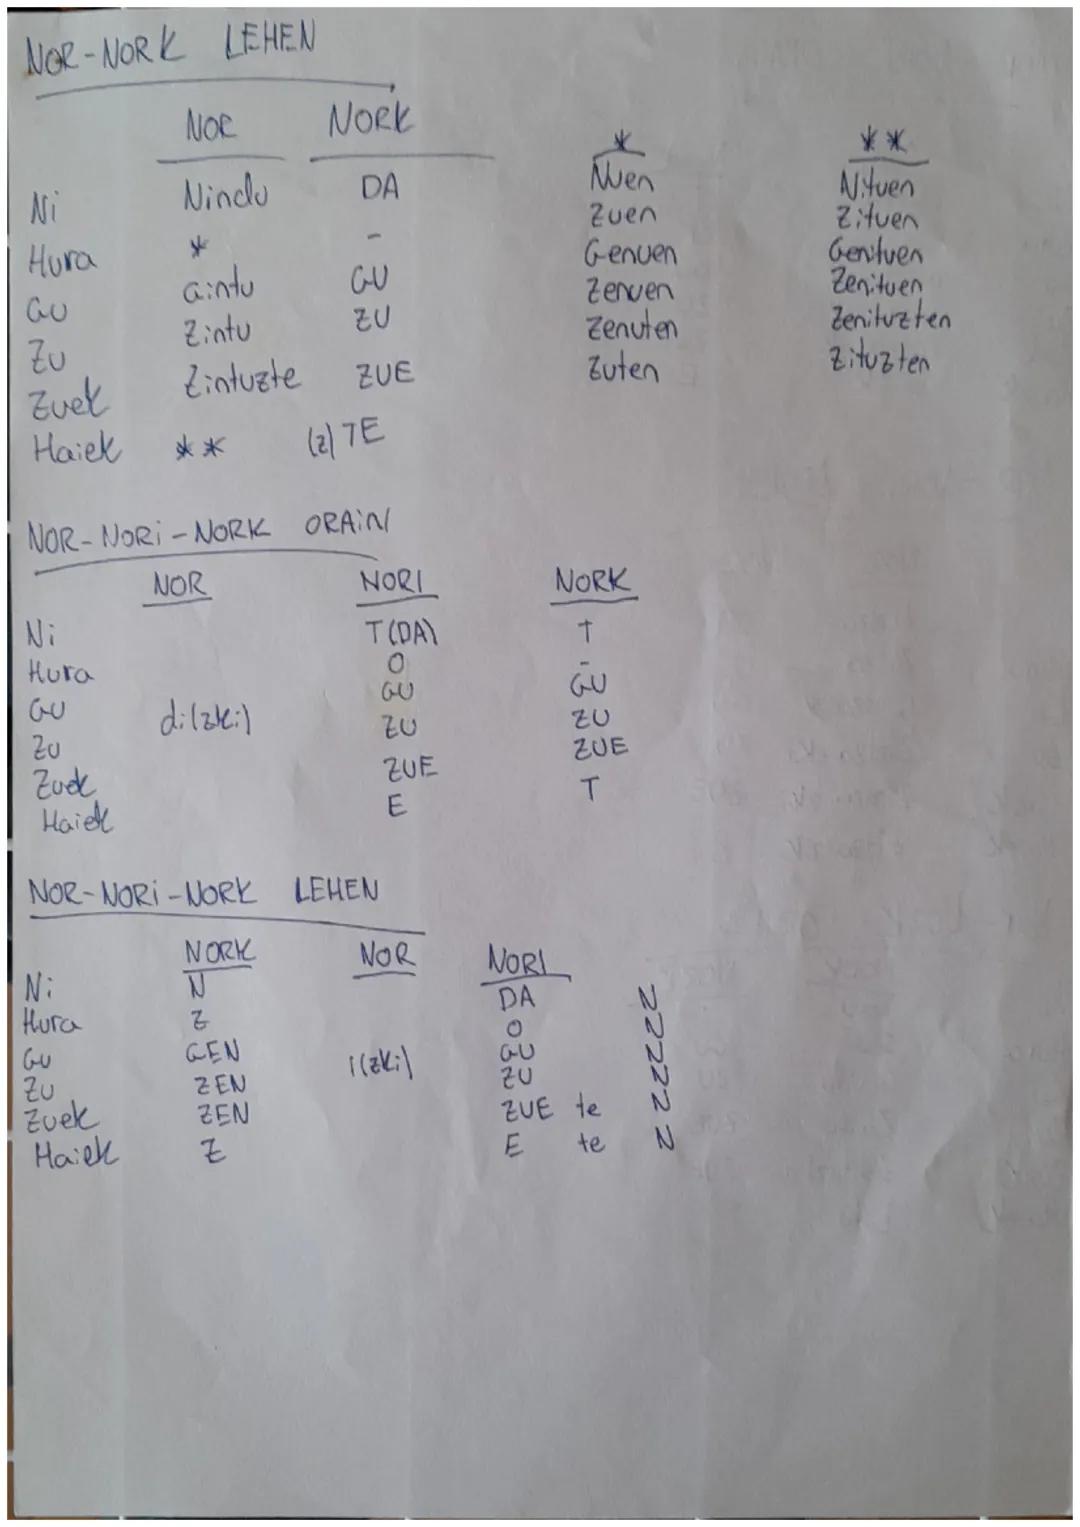 NOR-NORK LEHEN
NOR NORK * **
Ni Nindu DA Nuen Nituen
Hura * - Zuen Zituen
GU Gintu GU Genuen Genituen
ZU Zintu ZU Zenuen Zenituen
Zuek Zintuzte ZUE Zenuten Zenituzten
Haiek ** (z)TE Zuten Zituzten
NOR-NORi-NORK ORAiN
NOR NORI NORK
Ni T(DA) T
Hura O -
GU di(zki) GU GU
ZU ZU ZU
Zuek ZUE ZUE
Haiek E T
NOR-NORi-NORK LEHEN
NORK NOR NORI
Ni N DA N
Hura Z O N
GU GEN i(zki) GU N
ZU ZEN ZU N
Zuek ZEN ZUE te N
Haiek Z E te N